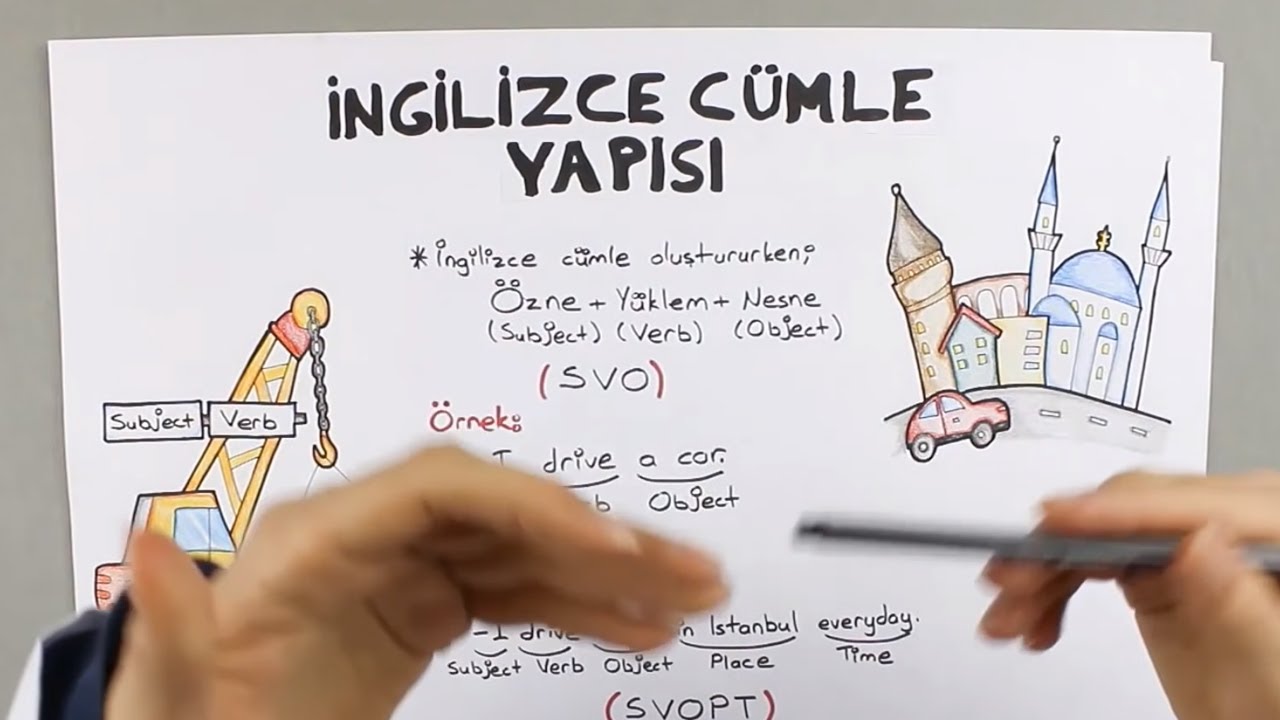 İNGİLİZCE CÜMLE
YAPISI
* İngilizce cümle oluştururken;
Özne + Yüklem + Nesne
(Subject) (Verb) (Object)
(SVO)
Subject Verb
Örnek:
I drive a car.
Object
-I drive in Istanbul everyday.
Subject Verb Object Place Time
(SVOPT)